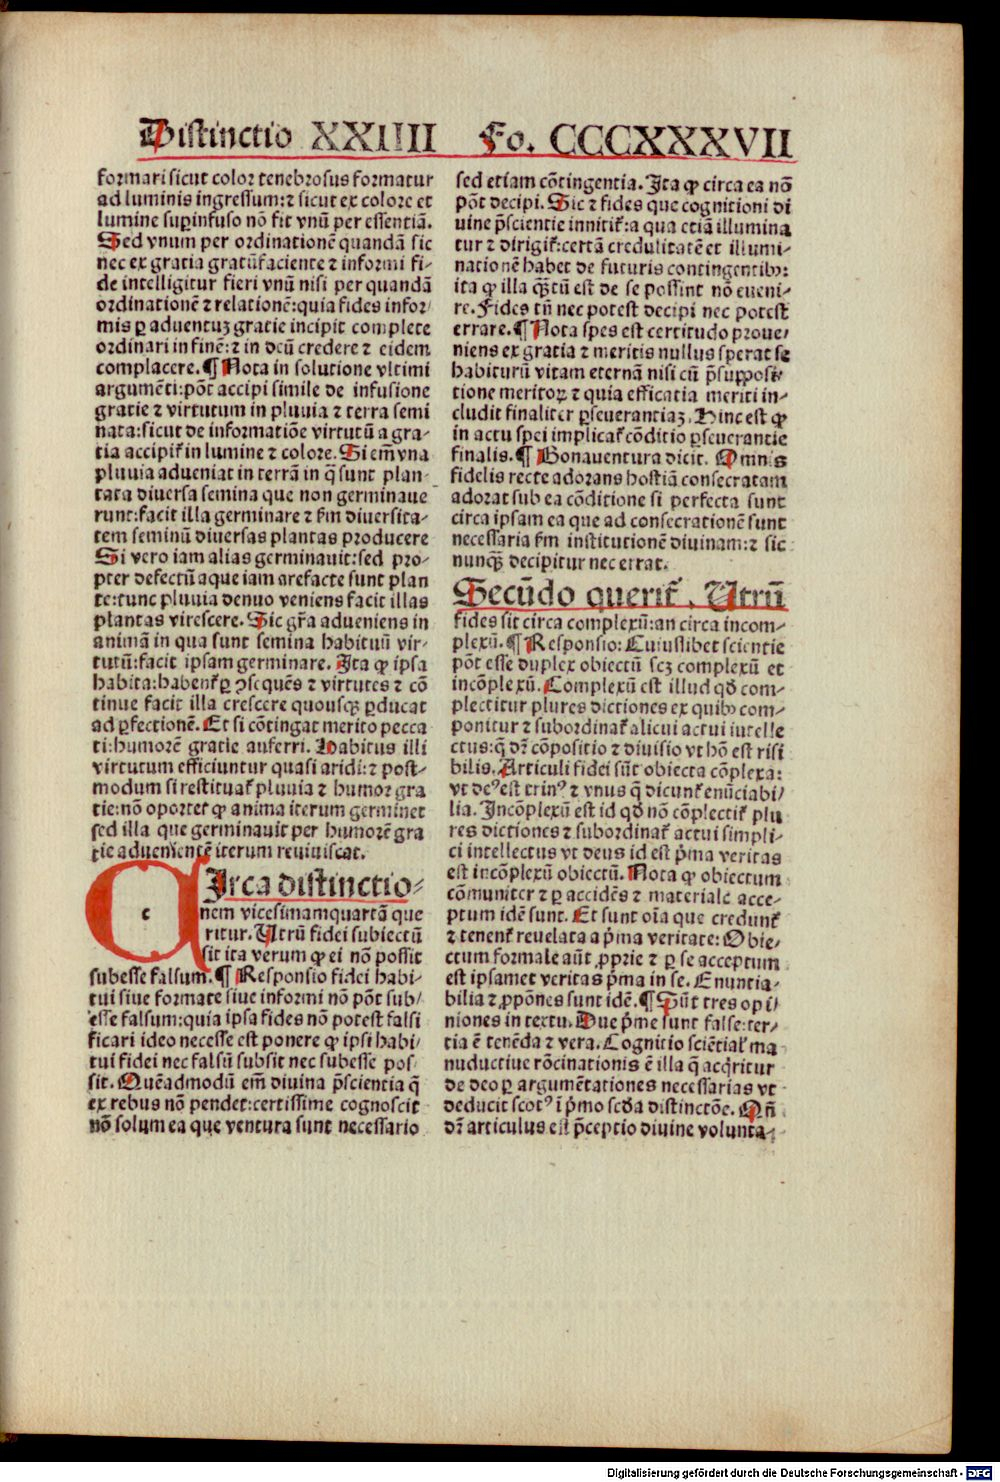 Distinctio XXIIII Fo. CCCXXXVII
formari sicut color tenebrosus formatur
ad luminis ingressum:⁊ sicut ex colore et
lumine suꝑinfuso nõ fit vnũ per essentiã.
Sed vnum per ordinationẽ quandã sic
nec ex gratia gratũfaciente ⁊ informi fi-
de intelligitur fieri vnũ nisi per quandã
ordinationẽ ⁊ relationẽ:quia fides infor-
mis ꝑ aduentuꝫ gratie incipit complete
ordinari in finẽ:⁊ in deũ credere ⁊ eidem
complacere. ¶ Nota in solutione vltimi
argumẽti:põt accipi simile de infusione
gratie ⁊ virtutum in pluuia ⁊ terra semi
nata:sicut de informatiõe virtutũ a gra-
tia accipit̃ in lumine ⁊ colore. Si em̃ vna
pluuia adueniat in terrã in q̃ sunt plan-
tata diuersa semina que non germinaue
runt:facit illa germinare ⁊ fm̃ diuersita-
tem seminũ diuersas plantas producere
Si vero iam alias germinauit:sed pro-
pter defectũ aque iam arefacte sunt plan
te:tunc pluuia denuo veniens facit illas
plantas virescere. Sic gr̃a adueniens in
animã in qua sunt semina habituũ vir-
tutũ:facit ipsam germinare. Ita ꝙ ipsa
habita:habent̃ ꝑ ꝯsequẽs ⁊ virtutes ⁊ cõ
tinue facit illa crescere quousqꝫ ꝑducat
ad ꝑfectionẽ. Et si cõtingat merito pecca
ti:humorẽ gratie auferri. Habitus illi
virtutum efficiuntur quasi aridi:⁊ post-
modum si restituat̃ pluuia ⁊ humor gra
tie:nõ oportet ꝙ anima iterum germinet
sed illa que germinauit per humorẽ gra
tie aduenientẽ iterum reuiuiscat.
c
Irca distinctio-
nem vicesimamquartã que
ritur. Vtrũ fidei subiectũ
sit ita verum ꝙ ei nõ possit
subesse falsum. ¶ Responsio fidei habi-
tui siue formate siue informi nõ põt sub-
esse falsum:quia ipsa fides nõ potest falsi
ficari ideo necesse est ponere ꝙ ipsi habi-
tui fidei nec falsũ subsit nec subesse pos-
sit. Quẽadmodũ em̃ diuina p̃scientia q̃
ex rebus nõ pendet:certissime cognoscit
nõ solum ea que ventura sunt necessario
sed etiam cõtingentia. Ita ꝙ circa ea nõ
põt decipi. Sic ⁊ fides que cognitioni di
uine p̃scientie innitit̃:a qua etiã illumina
tur ⁊ dirigit̃:certã credulitatẽ et illumi-
nationẽ habet de futuris contingentibꝰ:
ita ꝙ illa qꝫtũ est de se possint nõ eueni-
re. Fides tñ nec potest decipi nec potest
errare. ¶ Nota spes est certitudo proue-
niens ex gratia ⁊ meritis nullus sperat se
habiturũ vitam eternã nisi cũ p̃supposi-
tione meritoꝝ ⁊ quia efficatia meriti in-
cludit finaliter ꝑseuerantiaꝫ. Hinc est ꝙ
in actu spei implicat̃ cõditio ꝑseuerantie
finalis. ¶ Bonauentura dicit. Omnis
fidelis recte adorans hostiã consecratam
adorat sub ea cõditione si perfecta sunt
circa ipsam ea que ad consecrationẽ sunt
necessaria fm̃ institutionẽ diuinam:⁊ sic
nunqꝫ decipitur nec errat.
Secũdo querit̃. Vtrũ
fides sit circa complexũ:an circa incom-
plexũ. ¶ Responsio: Cuiuslibet scientie
põt esse duplex obiectũ scꝫ complexũ et
incõplexũ. Complexũ est illud qd̃ com-
plectitur plures dictiones ex quibꝰ com-
ponitur ⁊ subordinat̃ alicui actui intelle
ctus:q̃ dr̃ cõpositio ⁊ diuisio vt hõ est risi
bilis. Articuli fidei sũt obiecta cõplexa:
vt deꝰ est trinꝰ ⁊ vnus q̃ dicunt̃ enũciabi-
lia. Incõplexũ est id qd̃ nõ cõplectit̃ plu
res dictiones ⁊ subordinat̃ actui simpli-
ci intellectus vt deus id est p̃ma veritas
est incõplexũ obiectũ. Nota ꝙ obiectum
cõmuniter ⁊ ꝑ accidẽs ⁊ materiale acce-
ptum idẽ sunt. Et sunt oĩa que credunt̃
⁊ tenent̃ reuelata a p̃ma veritate: Obie-
ctum formale aũt ꝓprie ⁊ ꝑ se acceptum
est ipsamet veritas p̃ma in se. Enuntia-
bilia ⁊ ꝓpõnes sunt idẽ. ¶ Sũt tres opi-
niones in textu. Due p̃me sunt false:ter-
tia ẽ tenẽda ⁊ vera. Cognitio sciẽtial̃ ma
nuductiue rõcinationis ẽ illa q̃ acq̃ritur
de deo ꝑ argumẽtationes necessarias vt
deducit scotꝰ ĩ p̃mo scd̃a distinctõe. Qñ
dr̃ articulus est p̃ceptio diuine volunta-
Digitalisierung gefördert durch die Deutsche Forschungsgemeinschaft - DFG